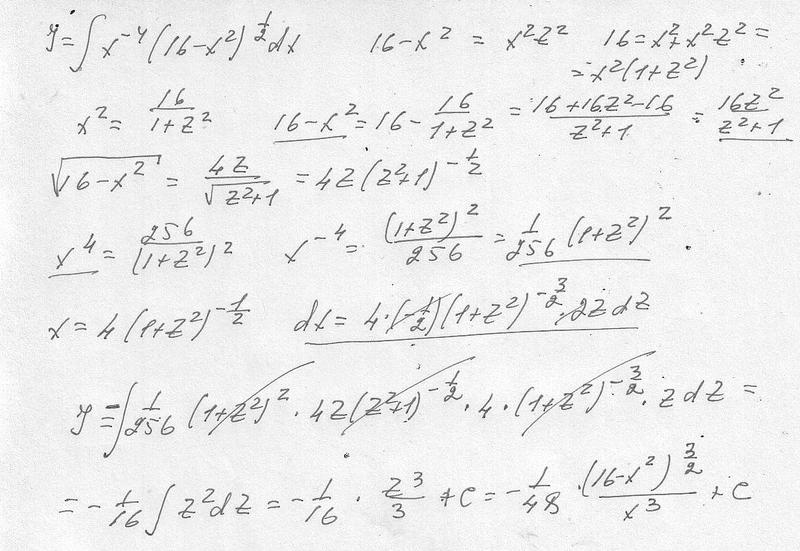 y = ∫ x^{-4} (16-x^2)^{1/2} dx   16-x^2 = x^2 z^2   16 = x^2 + x^2 z^2 =
= x^2 (1+z^2)
x^2 = 16/(1+z^2)   16-x^2 = 16 - 16/(1+z^2) = (16+16z^2-16)/(z^2+1) = 16z^2/(z^2+1)
√(16-x^2) = 4z/√(z^2+1) = 4z (z^2+1)^{-1/2}
x^4 = 256/(1+z^2)^2   x^{-4} = (1+z^2)^2/256 = 1/256 (1+z^2)^2
x = 4 (1+z^2)^{-1/2}   dx = 4·(-1/2)(1+z^2)^{-3/2}·2z dz
y = -∫ 1/256 (1+z^2)^2 · 4z (z^2+1)^{-1/2} · 4 · (1+z^2)^{-3/2} · z dz =
= -1/16 ∫ z^2 dz = -1/16 · z^3/3 + C = -1/48 · (16-x^2)^{3/2}/x^3 + C